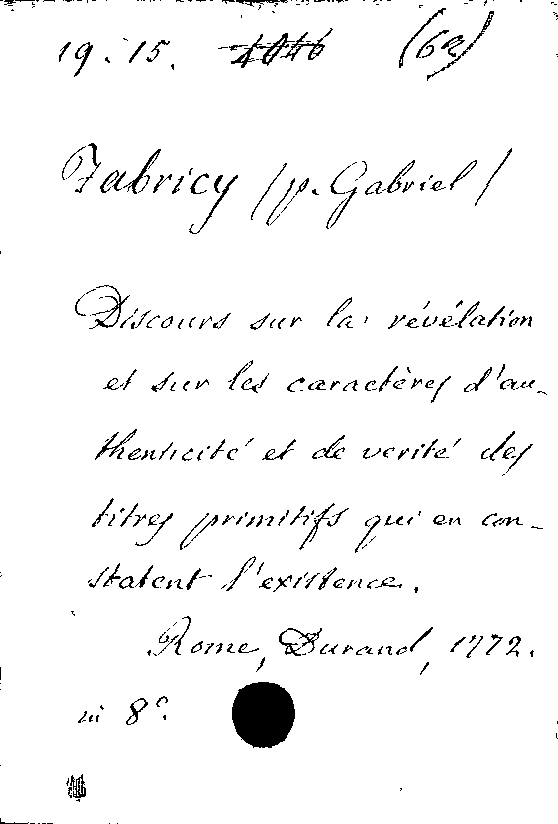 19. 15. 4046 (62)
Fabricy (p. Gabriel)
Discours sur la révélation
et sur les caractères d'au-
thenticité et de verité des
titres primitifs qui en con-
statent l'existence.
Rome, Durand, 1772.
in 8°.